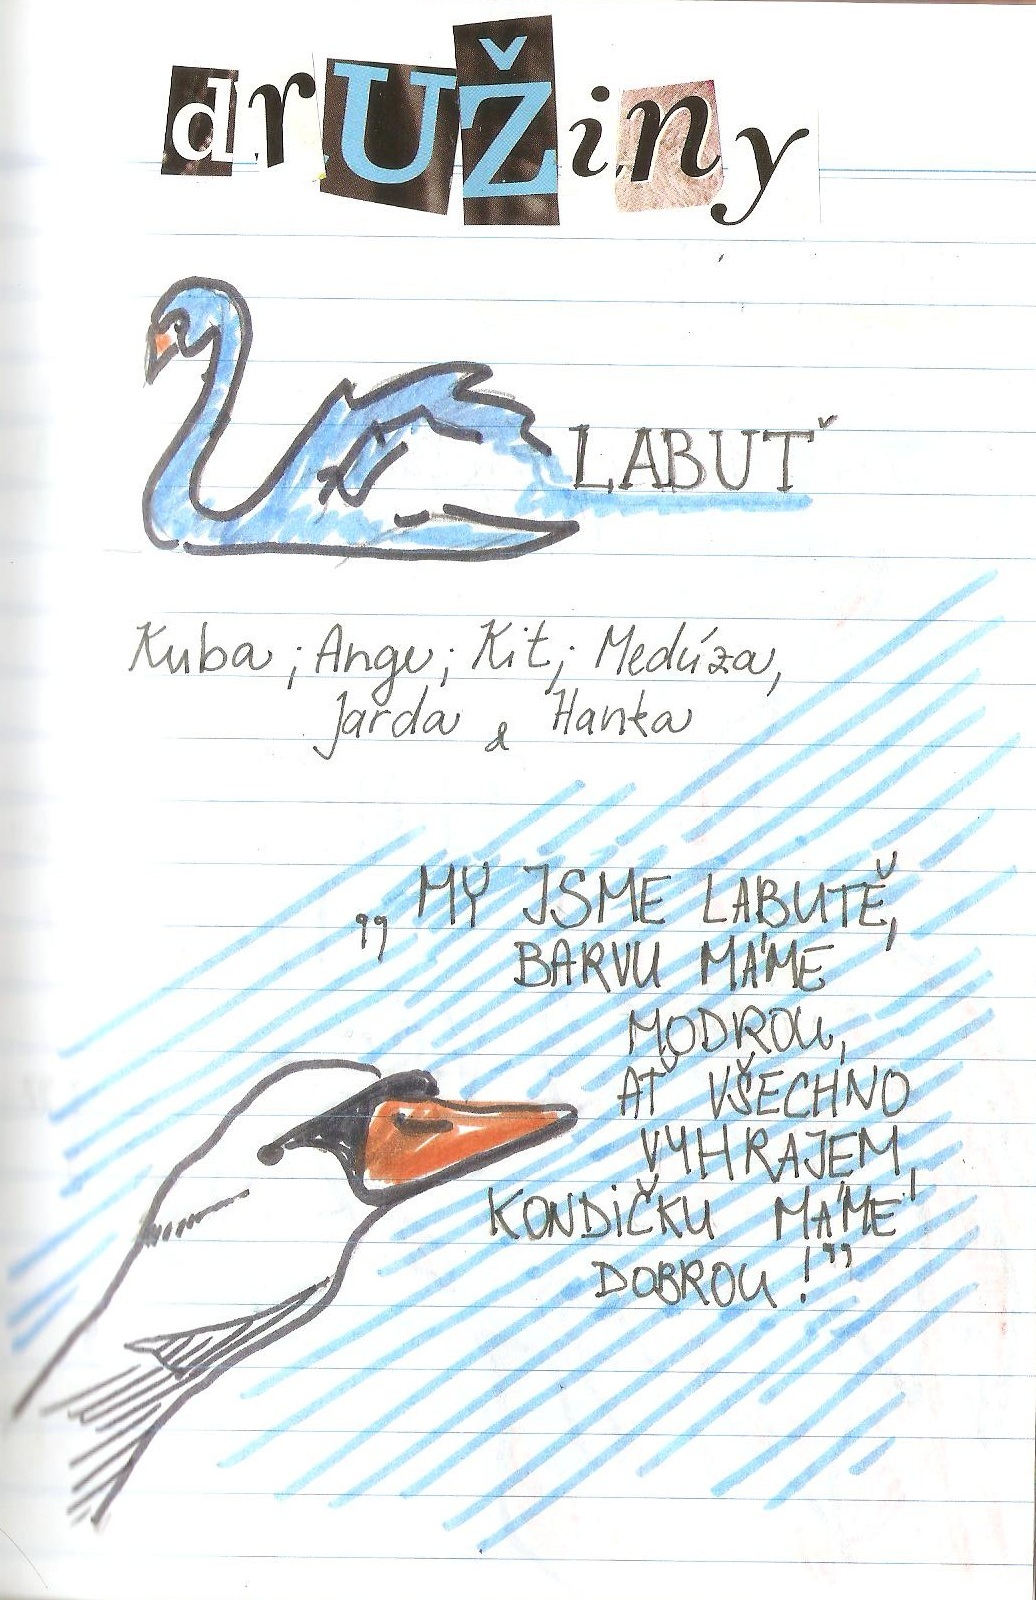 drUŽiny
LABUŤ
Kuba ; Ange ; Kit ; Medúza,
Jarda & Hanka
„ MY JSME LABUTĚ,
BARVU MÁME
MODROU,
AŤ VŠECHNO
VYHRAJEM,
KONDiČKU MÁME
DOBROU !”